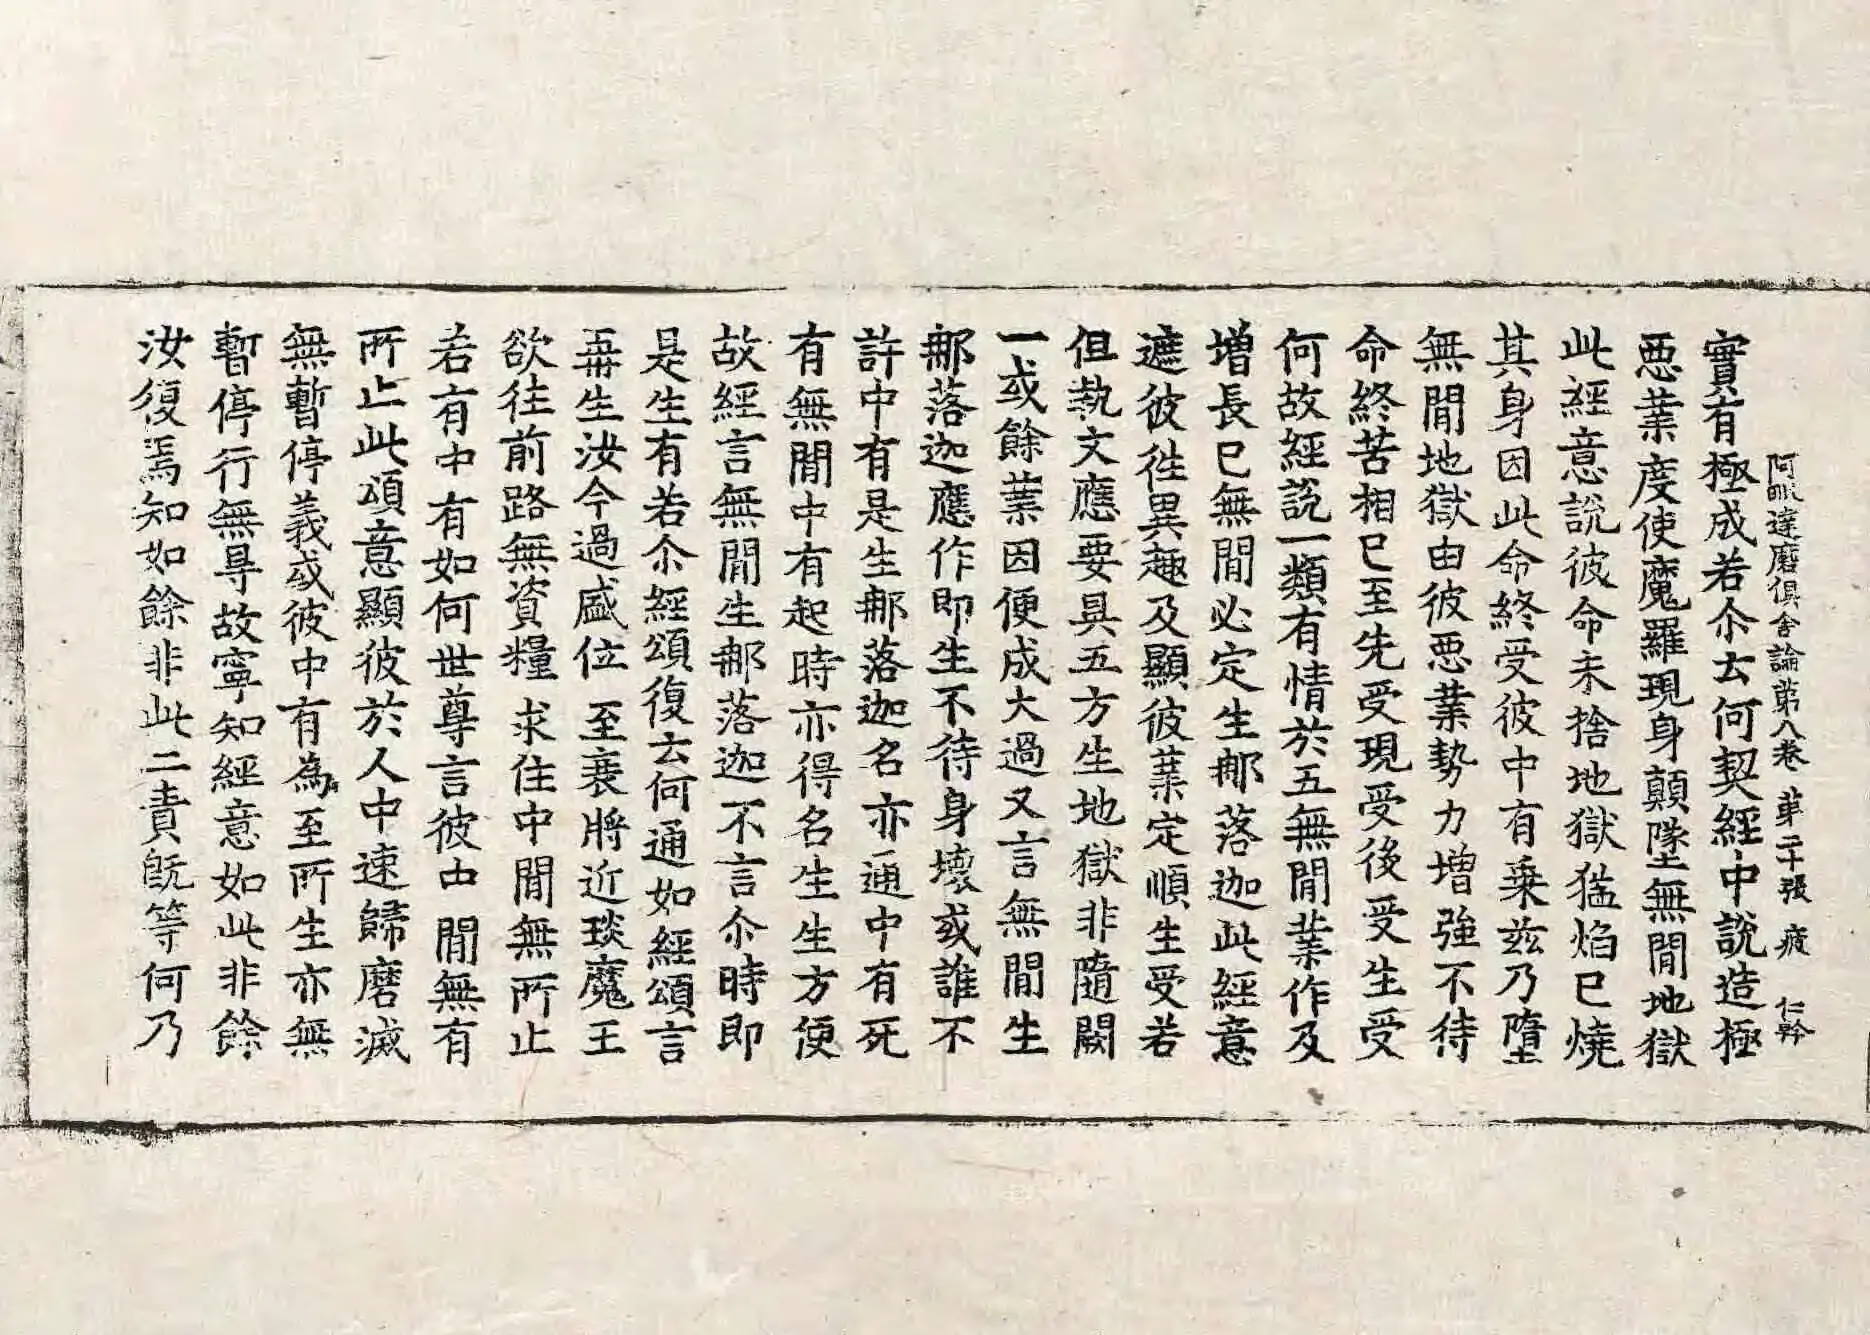 阿毗達磨俱舍論第八卷 第二十張 疲 仁幹
實有極成若尒云何契經中說造極
惡業度使魔羅現身顛墜無閒地獄
此經意說彼命未捨地獄猛焰已燒
其身因此命終受彼中有乗兹乃墮
無閒地獄由彼惡業勢力增強不待
命終苦相已至先受現受後受生受
何故經說一類有情於五無閒業作及
增長已無閒必定生那落迦此經意
遮彼徃異趣及顯彼業定順生受若
但執文應要具五方生地獄非隨闕
一或餘業因便成大過又言無閒生
那落迦應作即生不待身壞或誰不
許中有是生那落迦名亦通中有死
有無閒中有起時亦得名生生方便
故經言無閒生那落迦不言尒時即
是生有若尒經頌復云何通如經頌言
再生汝今過盛位 至衰將近琰魔王
欲往前路無資糧 求住中閒無所止
若有中有如何世尊言彼中閒無有
所止此頌意顯彼於人中速歸磨滅
無暫停義或彼中有為至所生亦無
暫停行無㝵故寧知經意如此非餘
汝復焉知如餘非此二責旣等何乃